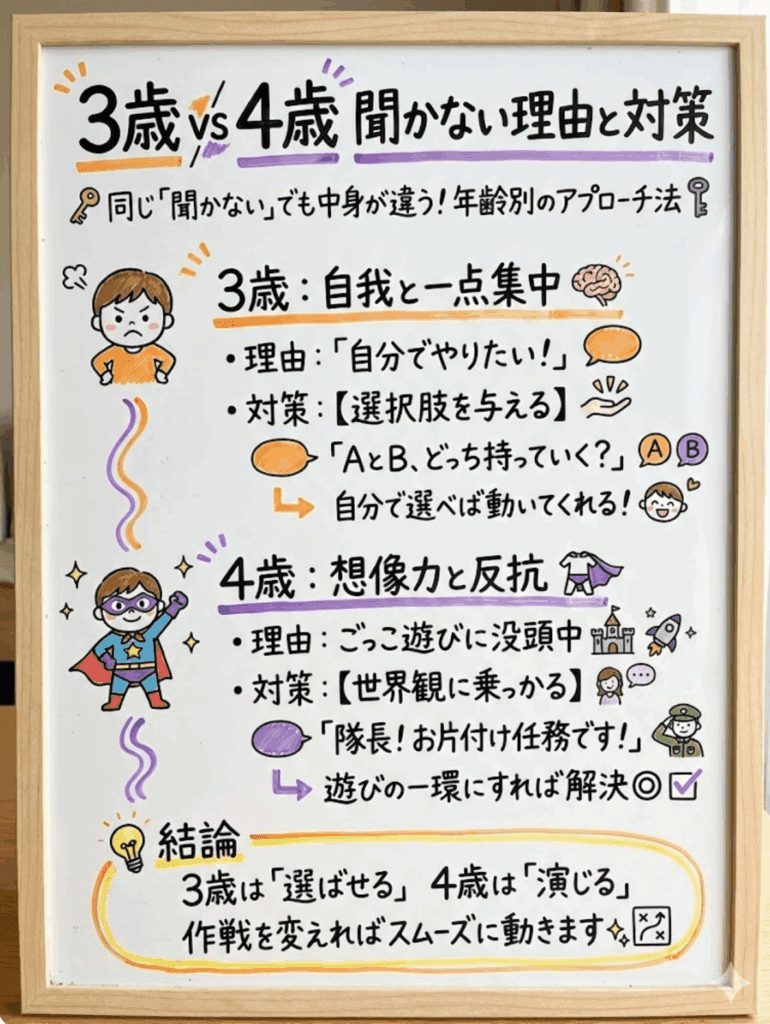 3歳 vs 4歳 聞かない理由と対策
同じ「聞かない」でも中身が違う！年齢別のアプローチ法
3歳：自我と一点集中
・理由：「自分でやりたい！」
・対策：【選択肢を与える】
「AとB、どっち持っていく？」 A B
自分で選べば動いてくれる！
4歳：想像力と反抗
・理由：ごっこ遊びに没頭中
・対策：【世界観に乗っかる】
「隊長！お片付け任務です！」
遊びの一環にすれば解決◎
結論
3歳は「選ばせる」 4歳は「演じる」
作戦を変えればスムーズに動きます